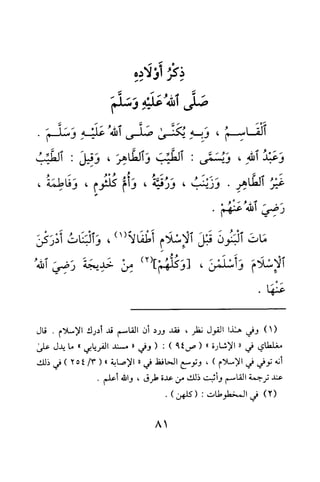 ذِكْرُ أَوْلَادِهِ
صَلَّى ٱللهُ عَلَيْهِ وَسَلَّمَ
ٱلْقَـاسِـمُ ، وَبِـهِ يُكَنَّـىٰ صَلَّـى ٱللهُ عَلَيْـهِ وَسَلَّـمَ .
وَعَبْدُ ٱللهِ ، وَيُسَمَّى : ٱلطَّيِّبَ وَٱلطَّاهِرَ ، وَقِيلَ : ٱلطَّيِّبُ
غَيْرُ ٱلطَّاهِرِ . وَزَيْنَبُ ، وَرُقَيَّةُ ، وَأُمُّ كُلْثُومٍ ، وَفَاطِمَةُ ،
رَضِيَ ٱللهُ عَنْهُمْ .
مَاتَ ٱلْبَنُونَ قَبْلَ ٱلْإِسْلَامِ أَطْفَالاً(١) ، وَٱلْبَنَاتُ أَدْرَكْنَ
ٱلْإِسْلَامَ وَأَسْلَمْنَ ، [وَكُلُّهُمْ](٢) مِنْ خَدِيجَةَ رَضِيَ ٱللهُ
عَنْهَا .
(١) وفي هـٰذا القول نظر ، فقد ورد أن القاسم قد أدرك الإسلام . قال
مغلطاي في « الإشارة » ( ص٩٤ ) : ( وفي « مسند الفريابي » ما يدل علىٰ
أنه توفي في الإسلام ) ، وتوسع الحافظ في « الإصابة » ( ٣/ ٢٥٤ ) في ذلك
عند ترجمة القاسم وأثبت ذلك من عدة طرق ، والله أعلم .
(٢) في المخطوطات : ( كلهن ) .
٨١